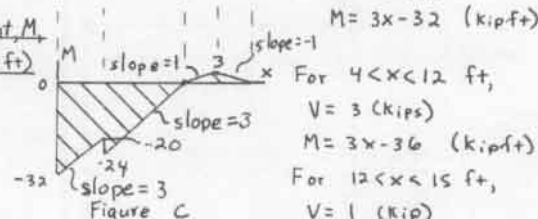 nt, M,
ft)
M
0
slope=1
3
slope=-1
x
slope=3
-20
-24
-32
slope=3
Figure C
M=3x-32 (kip ft)
For 4<x<12 ft,
V= 3 (kips)
M=3x-36 (kipft)
For 12<x<15 ft,
V= 1 (kip)